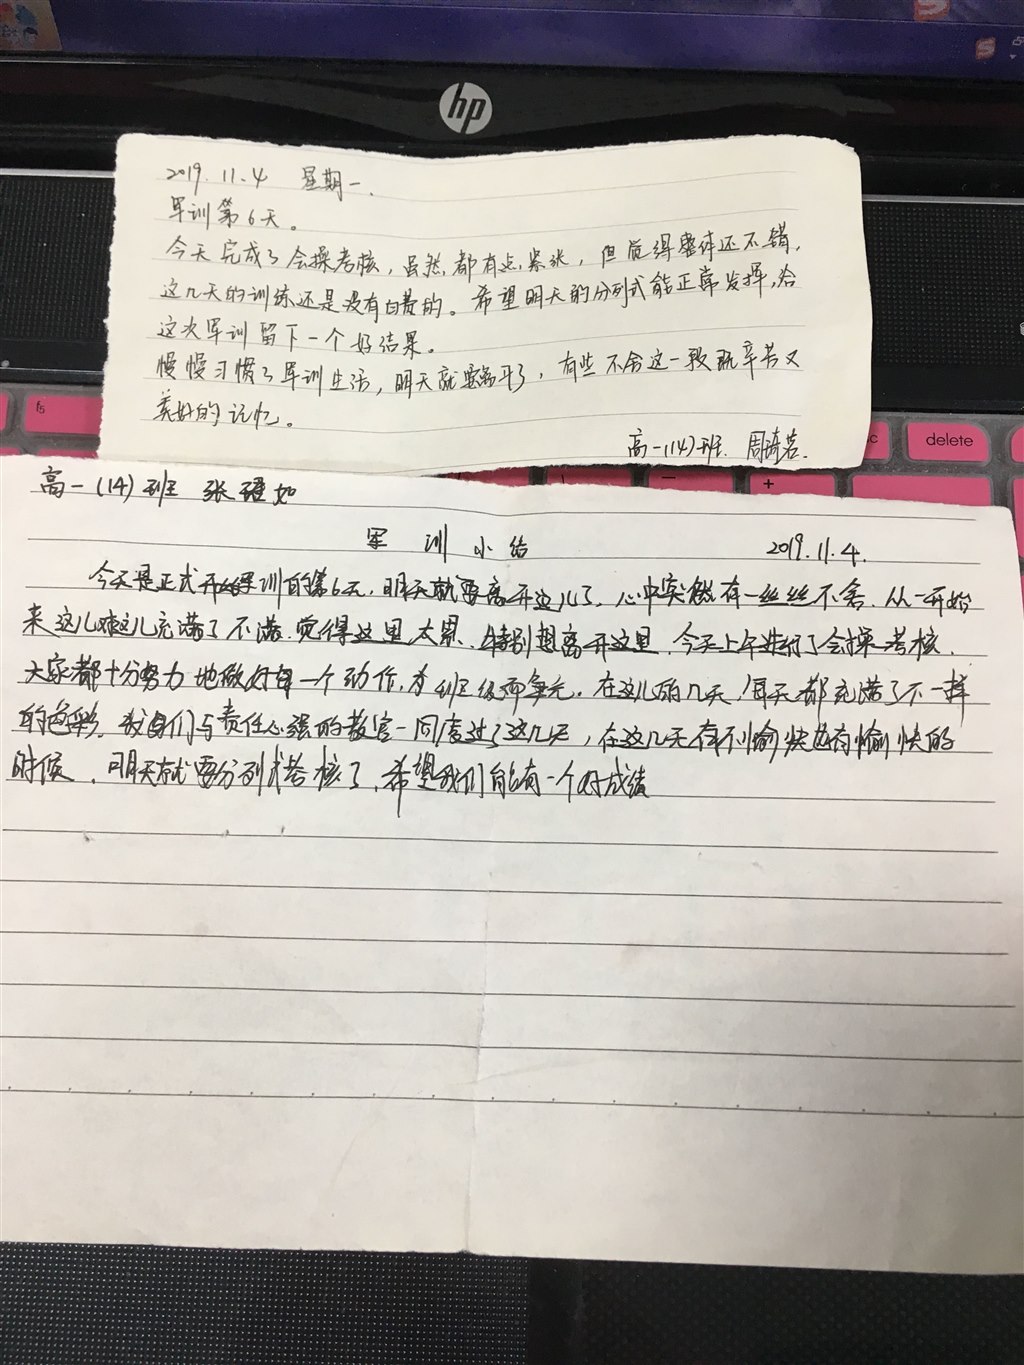 hp
2019.11.4 星期一.
军训第6天。
今天完成了会操考核,虽然都有点紧张,但觉得整体还不错,
这几天的训练还是没有白费的。希望明天的分列式能正常发挥,给
这次军训留下一个好结果。
慢慢习惯了军训生活,明天就要离开了,有些不舍这一段既辛苦又
美好的记忆。
高一(14)班 周琦茗.
f5
delete
高一(14)班 张 如
军训小结 2019.11.4.
今天是正式开始军训的第6天,明天就要离开这儿了,心中突然有一丝丝不舍.从一开始
来这儿对这儿充满了不满.觉得这里太累.特别想离开这里.今天上午进行了会操考核.
大家都十分努力地做好每一个动作,为班级而争光.在这儿的几天,每天都充满了不一样
的色彩.我们与责任心强的教官一同度过了这几天,在这几天有不愉快也有愉快的
时候.明天就要分列式考核了,希望我们能有一个好成绩